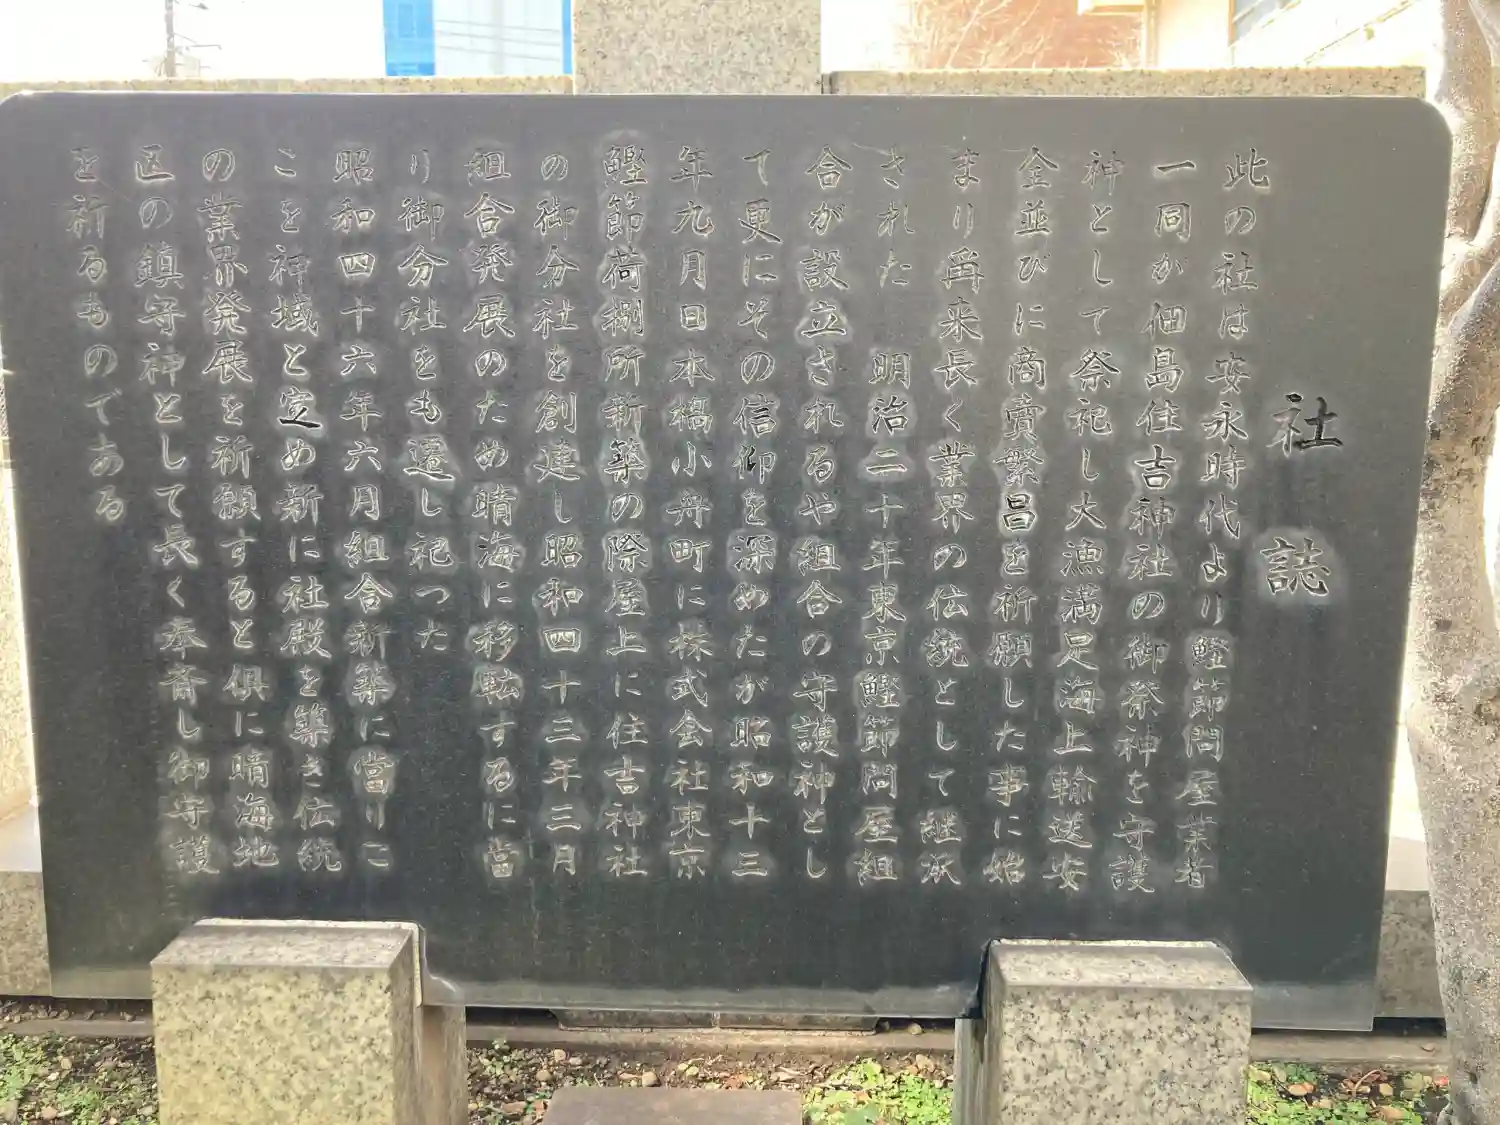 社誌
此の社は安永時代より鰹節問屋業者
一同が佃島住吉神社の御祭神を守護
神として祭祀し大漁満足海上輸送安
全並びに商賣繁昌を祈願した事に始
まり再来長く業界の伝統として継承
された 明治二十年東京鰹節問屋組
合が設立されるや組合の守護神とし
て更にその信仰を深めたが昭和十三
年九月日本橋小舟町に株式会社東京
鰹節荷捌所新築の際屋上に住吉神社
の御分社を創建し昭和四十三年三月
組合発展のため晴海に移転するに當
り御分社をも遷し祀った
昭和四十六年六月組合新築に當りこ
こを神域と定め新に社殿を築き伝統
の業界発展を祈願すると倶に晴海地
区の鎮守神として長く奉斎し御守護
を祈るものである